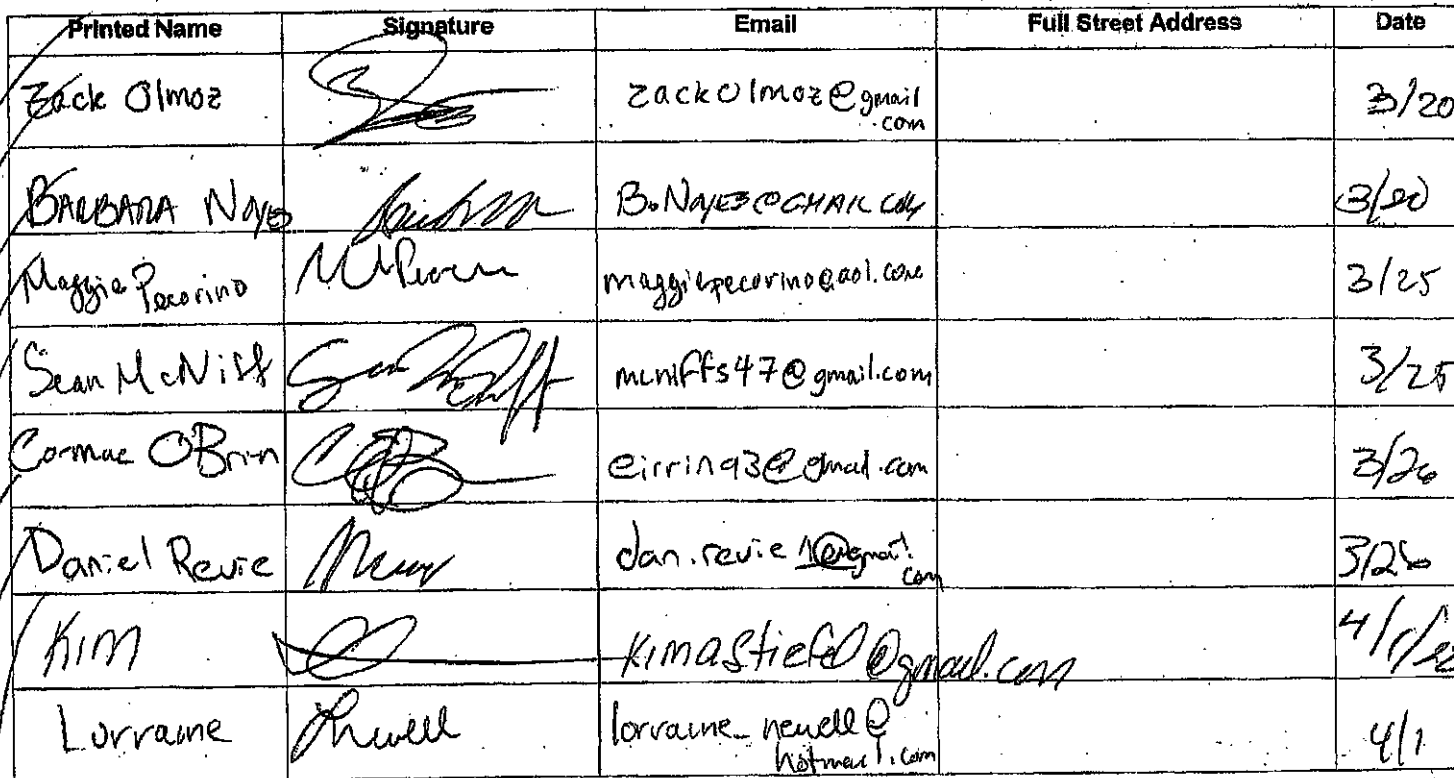 Printed Name Signature Email Full Street Address Date
Zack Olmoz zackolmoz@gmail 3/20
.com
BARBARA Noyes B.NOYES@GMAIL.COM 3/20
Maggie Pecorino maggiepecorino@aol.com 3/25
Sean McNiff mcniffs47@gmail.com 3/25
Cormac O'Brin eirrin93@gmail.com 3/26
Daniel Revie dan.revie1@gmail. 3/26
com
Kim kimastiefel@gmail.com
Lorraine Lnewell lorraine_newell@ 4/1
hotmail.com